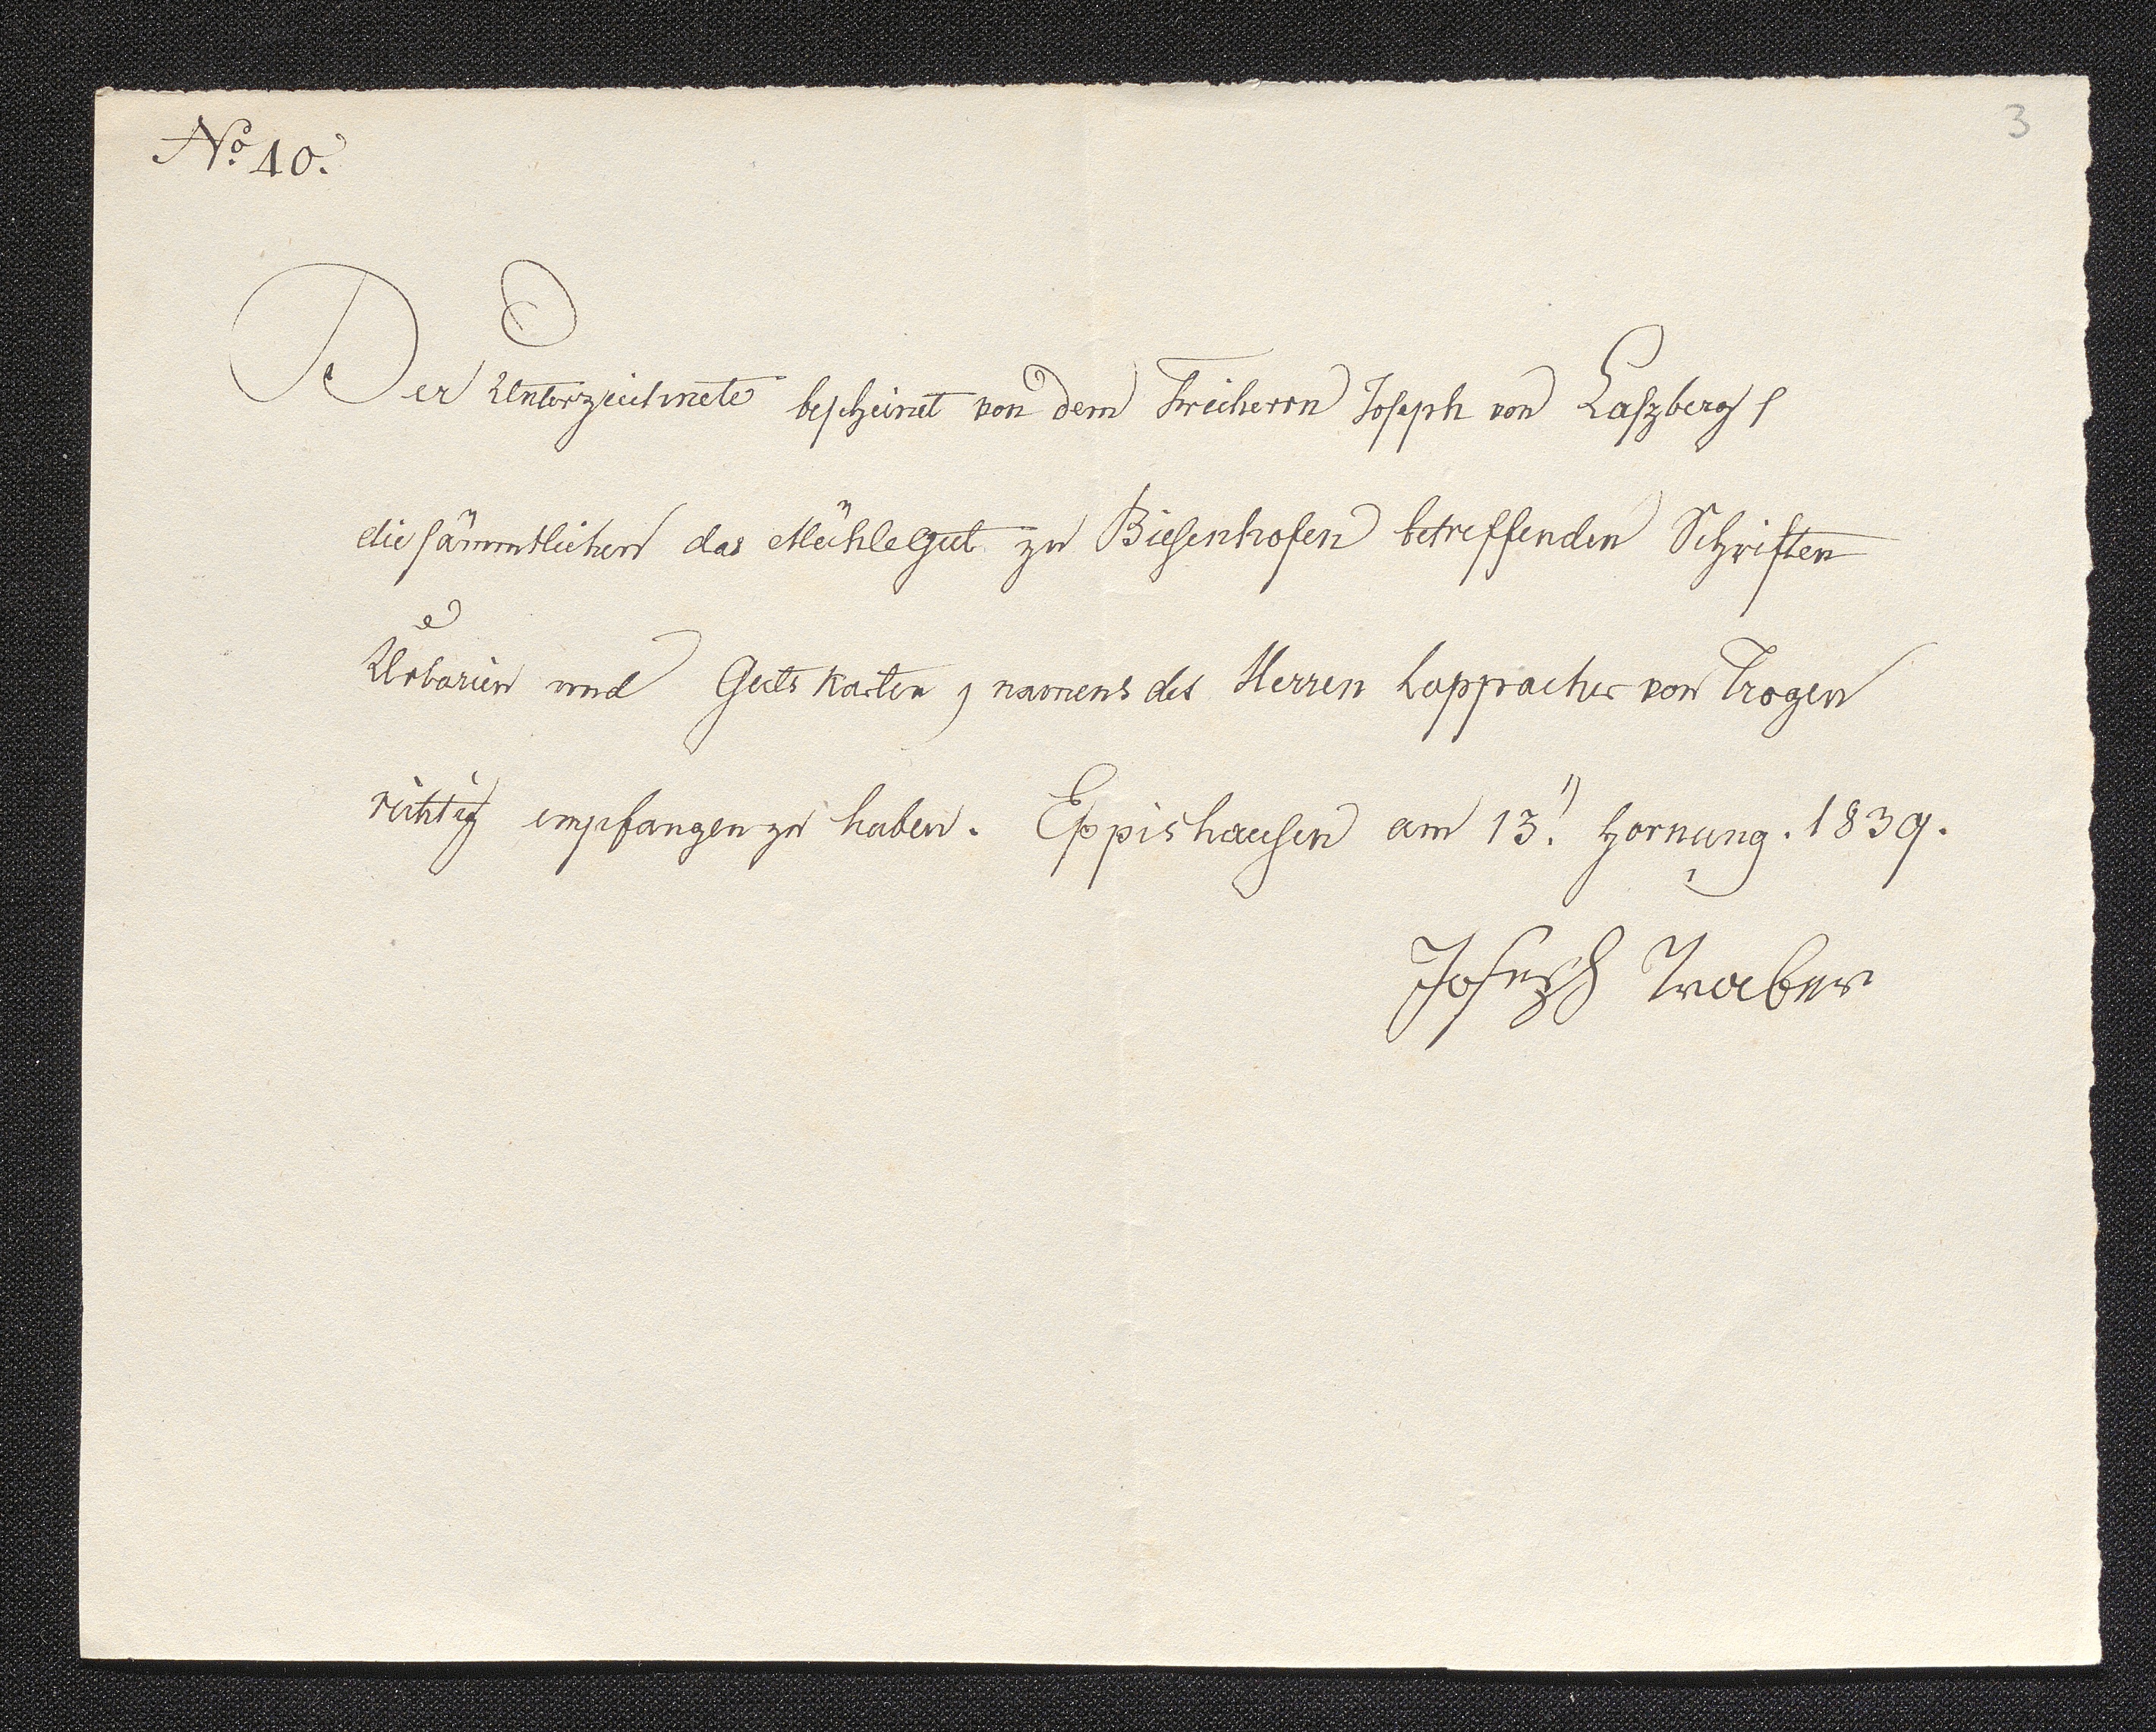 No. 40.
3
Der Unterzeichnete bescheinet von dem Freiherrn Joseph von Laszberg
die sämmtlichen das Mühlegut zu Biesenhofen betreffenden Schriften
Urbarien und Guts karten, namens des Herren Lappracher von Trogen
richtig empfangen zu haben. Eppishausen am 13. Hornung. 1839.
Joseph Traber